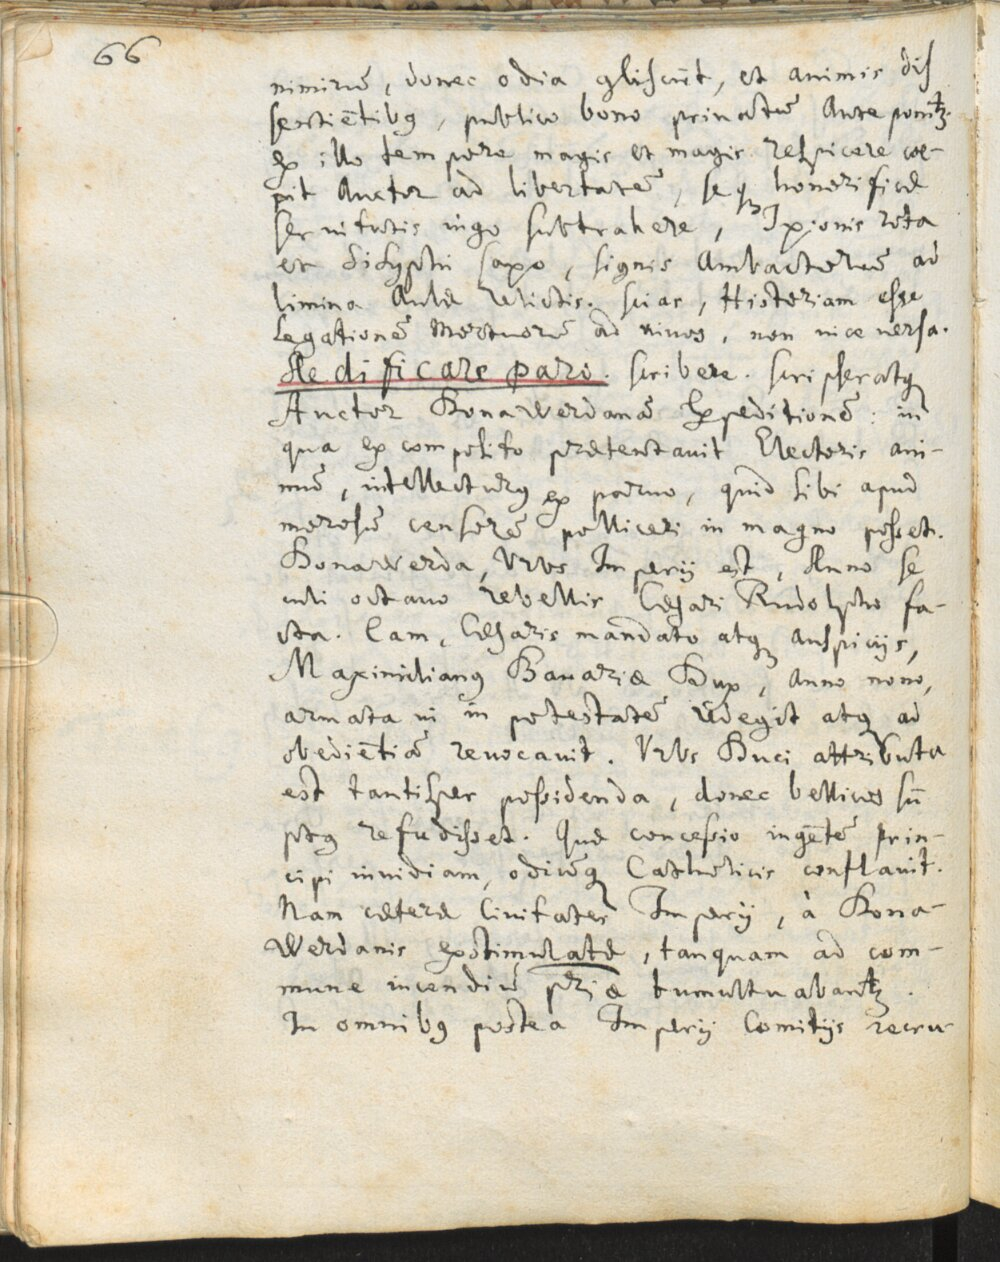 66
nimirū, donec odia gliscūt, et animis dis
sentiētibꝫ, publico bono privatū Anteponitꝫ.
ex illo tempore magis et magis respicere coe-
pit Auctor ad libertatē, seqꝫ honorificæ
servitutis iugo subtrahere, Ixionis rota
et Sisyphi saxo, signis Ambactorum ad
limina Aulæ relictis. scias, Historiam esse
Legationē Mortuorū ad vivos, non vice versa.
Aedificare paro. scribere. scripseratqꝫ
Auctor Donawerdanā Expeditionē: in
qua ex composito prætentavit Electoris ani-
mū, intellecturꝰ ex parvo, quid sibi apud
morosū censorē polliceri in magno posset.
Donawerda, Vrbs Imperij est, Anno se
culi octavo rebellis Cæsari Rudolpho fa-
cta. Eam, Cæsaris mandato atqꝫ Auspicijs,
Maximilianꝰ Bavariæ Dux, Anno nono,
armata vi in potestatē redegit atqꝫ ad
obediētiā revocavit. Vrbs Duci attributa
est tantisper possidenda, donec bellicos sū
ptꝰ refudisset. Quæ concessio ingētē prin-
cipi invidiam, odiūqꝫ Catholicis conflavit.
Nam cæteræ Civitates Imperij, à Dona-
werdanis exstimulatæ, tanquam ad com-
mune incendiū pr̄iæ tumultuabantꝫ.
In omnibꝰ postea Imperij Comitijs recru-